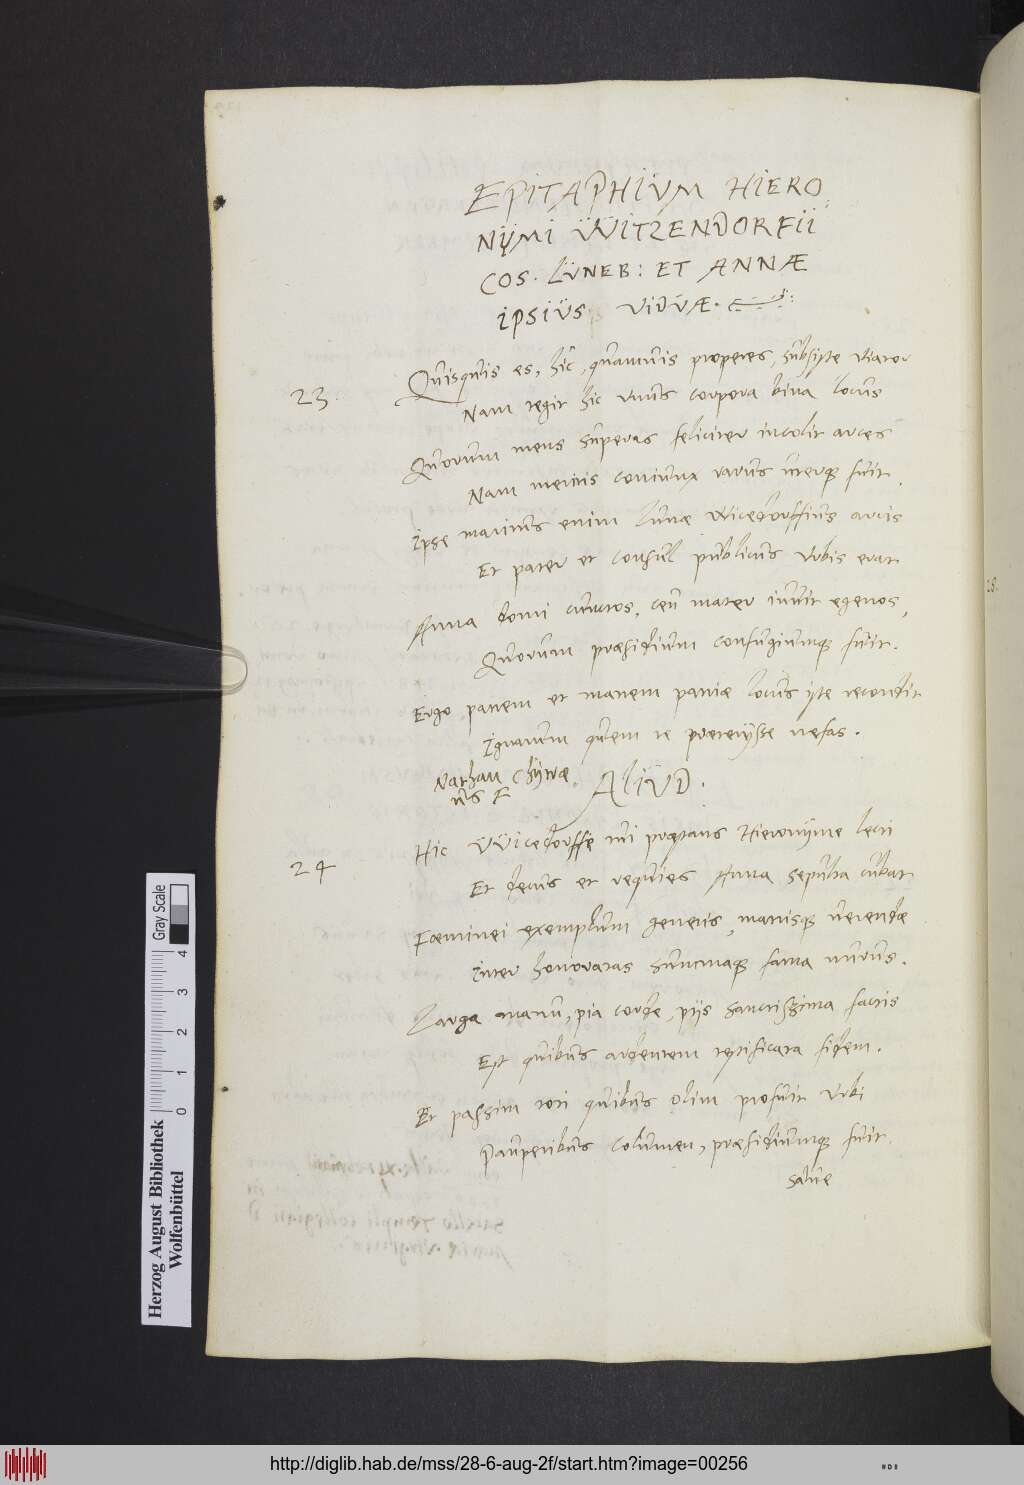 EPITAPHIUM HIERO
NŸMI WITZENDORFII
COS. LÜNEB: ET ANNÆ
IPSIUS VIDUÆ.
23. Quisquis es, hîc, quamuis properes, subsiste viator
Nam tegit hic unus corpora bina locus
Quorum mens superas feliciter incolit arces
Nam meritis coniunx rarus uterque fuit.
Ipse maritus enim Lunæ Wicedorffius arcis
Et pater et consul publicus urbis erat
Anna domi cunctos, ceu mater iuuit egenos,
Quorum præsidium confugiumque fuit.
Ergo patrem et matrem patriæ locus iste recondit
Ignauum quem te præterijsse nefas.
Nathan Chytræ
us F
ALIUD.
24 Hic Wicedorffe mi præstans Hieronyme lecti
Et decus et requies Anna sepulta cubat
Fœminei exemplum generis, matrisque uerendæ
Inter honoratas summaque fama nurus.
Larga manu, pia corde, pijs sanctissima factis
Est quibus ardentem testificata fidem.
Et passim toti quibus olim profuit urbi
Pauperibus columen, præsidiumque fuit.
salue
Herzog August Bibliothek
Wolfenbüttel
0 1 2 3 4
Gray Scale
http://diglib.hab.de/mss/28-6-aug-2f/start.htm?image=00256